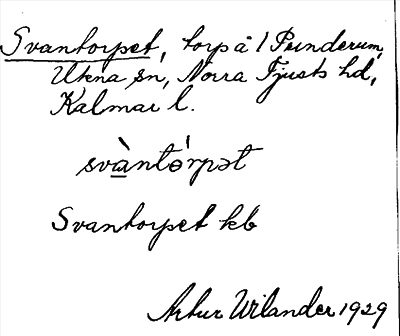 Svantorpet, torp å 1 Penderum,
Ukna sn, Norra Tjusts hd,
Kalmar l.
svàntórpət
Svantorpet kb
Artur Wilander 1929